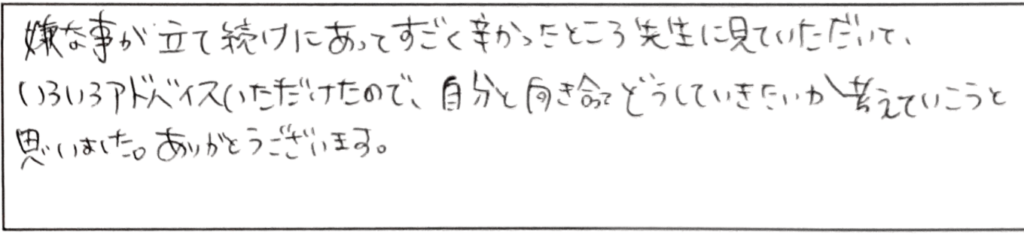 嫌な事が立て続けにあってすごく辛かったところ先生に見ていただいて、
いろいろアドバイスいただけたので、自分と向き合ってどうしていきたいか考えていこうと
思いました。ありがとうございます。